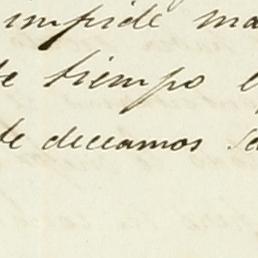 impide ma
tiempo
te deceamos